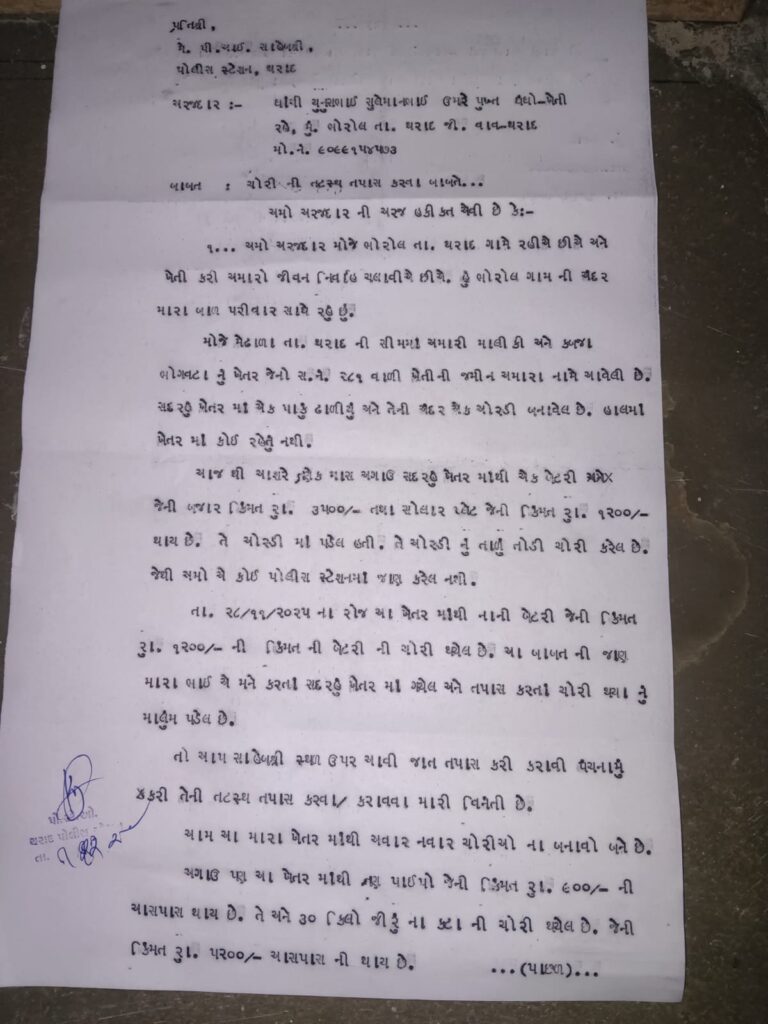 પ્રતિશ્રી,
મે. પી.આઈ. સાહેબશ્રી,
પોલીસ સ્ટેશન, થરાદ
અરજદાર :- ઘાંચી યુનુસભાઈ સુલેમાનભાઈ ઉમરે પુખ્ત ધંધો-ખેતી
રહે, મું. ભોરોલ તા. થરાદ જી. વાવ-થરાદ
મો.નં. ૯૦૯૯૧૫૪૫૭૩
બાબત : ચોરી ની તટસ્થ તપાસ કરવા બાબતે...
અમો અરજદાર ની અરજ હકીકત એવી છે કે:-
૧... અમો અરજદાર મોજે ભોરોલ તા. થરાદ ગામે રહીએ છીએ અને
ખેતી કરી અમારો જીવન નિર્વાહ ચલાવીએ છીએ. હું ભોરોલ ગામ ની અંદર
મારા બાળ પરીવાર સાથે રહું છું.
મોજે મેઢાળા તા. થરાદ ની સીમમાં અમારી માલીકી અને કબ્જા
ભોગવટા નું ખેતર જેનો સ.નં. ૨૮૧ વાળી ખેતીની જમીન અમારા નામે આવેલી છે.
સદરહું ખેતર માં એક પાકું ઢાળીયું અને તેની અંદર એક ઓરડી બનાવેલ છે. હાલમાં
ખેતર માં કોઈ રહેતું નથી.
આજ થી આશરે એક માસ અગાઉ સદરહું ખેતર માંથી એક બેટરી અને
જેની બજાર કિંમત રુા. ૩૫૦૦/- તથા સોલાર પ્લેટ જેની કિંમત રુા. ૧૨૦૦/-
થાય છે. તે ઓરડી માં પડેલ હતી. તે ઓરડી નું તાળું તોડી ચોરી કરેલ છે.
જેથી અમો એ કોઈ પોલીસ સ્ટેશનમાં જાણ કરેલ નથી.
તા. ૨૮/૧૧/૨૦૨૫ ના રોજ આ ખેતર માંથી નાની બેટરી જેની કિંમત
રુા. ૧૨૦૦/- ની કિંમત ની બેટરી ની ચોરી થયેલ છે. આ બાબત ની જાણ
મારા ભાઈ એ મને કરતાં સદરહું ખેતર માં ગયેલ અને તપાસ કરતાં ચોરી થયા નું
માલુમ પડેલ છે.
તો આપ સાહેબશ્રી સ્થળ ઉપર આવી જાત તપાસ કરી કરાવી પંચનામું
કરી તેની તટસ્થ તપાસ કરવા/ કરાવવા મારી વિનંતી છે.
આમ આ મારા ખેતર માંથી અવાર નવાર ચોરીઓ ના બનાવો બને છે.
અગાઉ પણ આ ખેતર માંથી ત્રણ પાઈપો જેની કિંમત રુા. ૯૦૦/- ની
આસપાસ થાય છે. તે અને ૩૦ કિલો જીરું ના કટા ની ચોરી થયેલ છે. જેની
કિંમત રુા. ૫૨૦૦/- આસપાસ ની થાય છે. ...(પાછળ)...
થરાદ પોલીસ
તા.